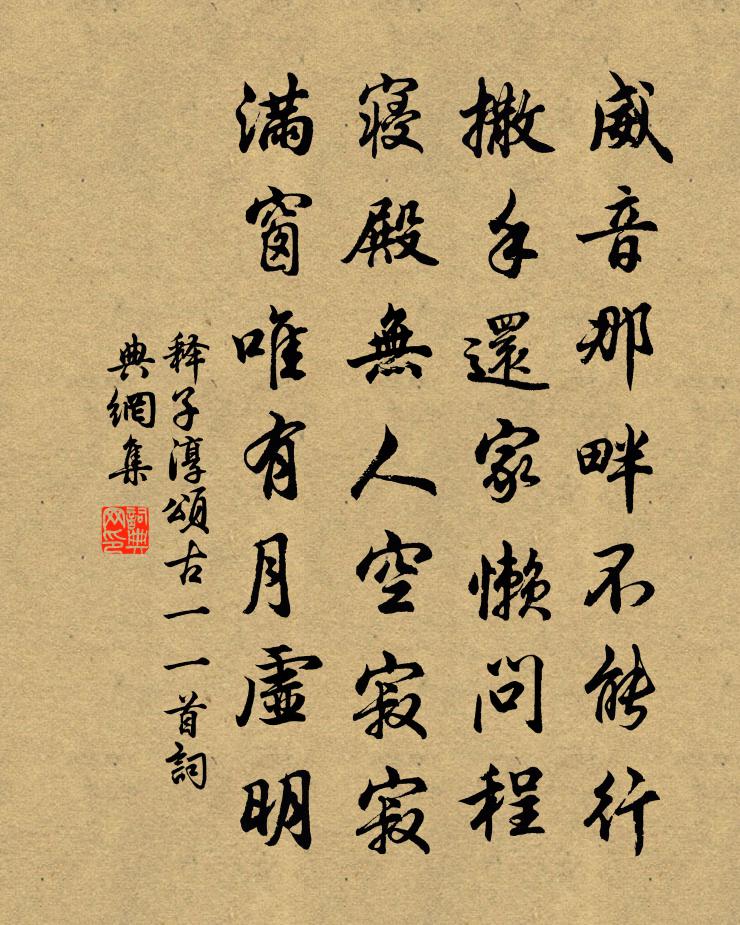 威音那畔不能行
撒手還家懶問程
寝殿無人空寂寂
满窗唯有月虛明
释子淳頌古一一首詞
典網集
詞典
网印